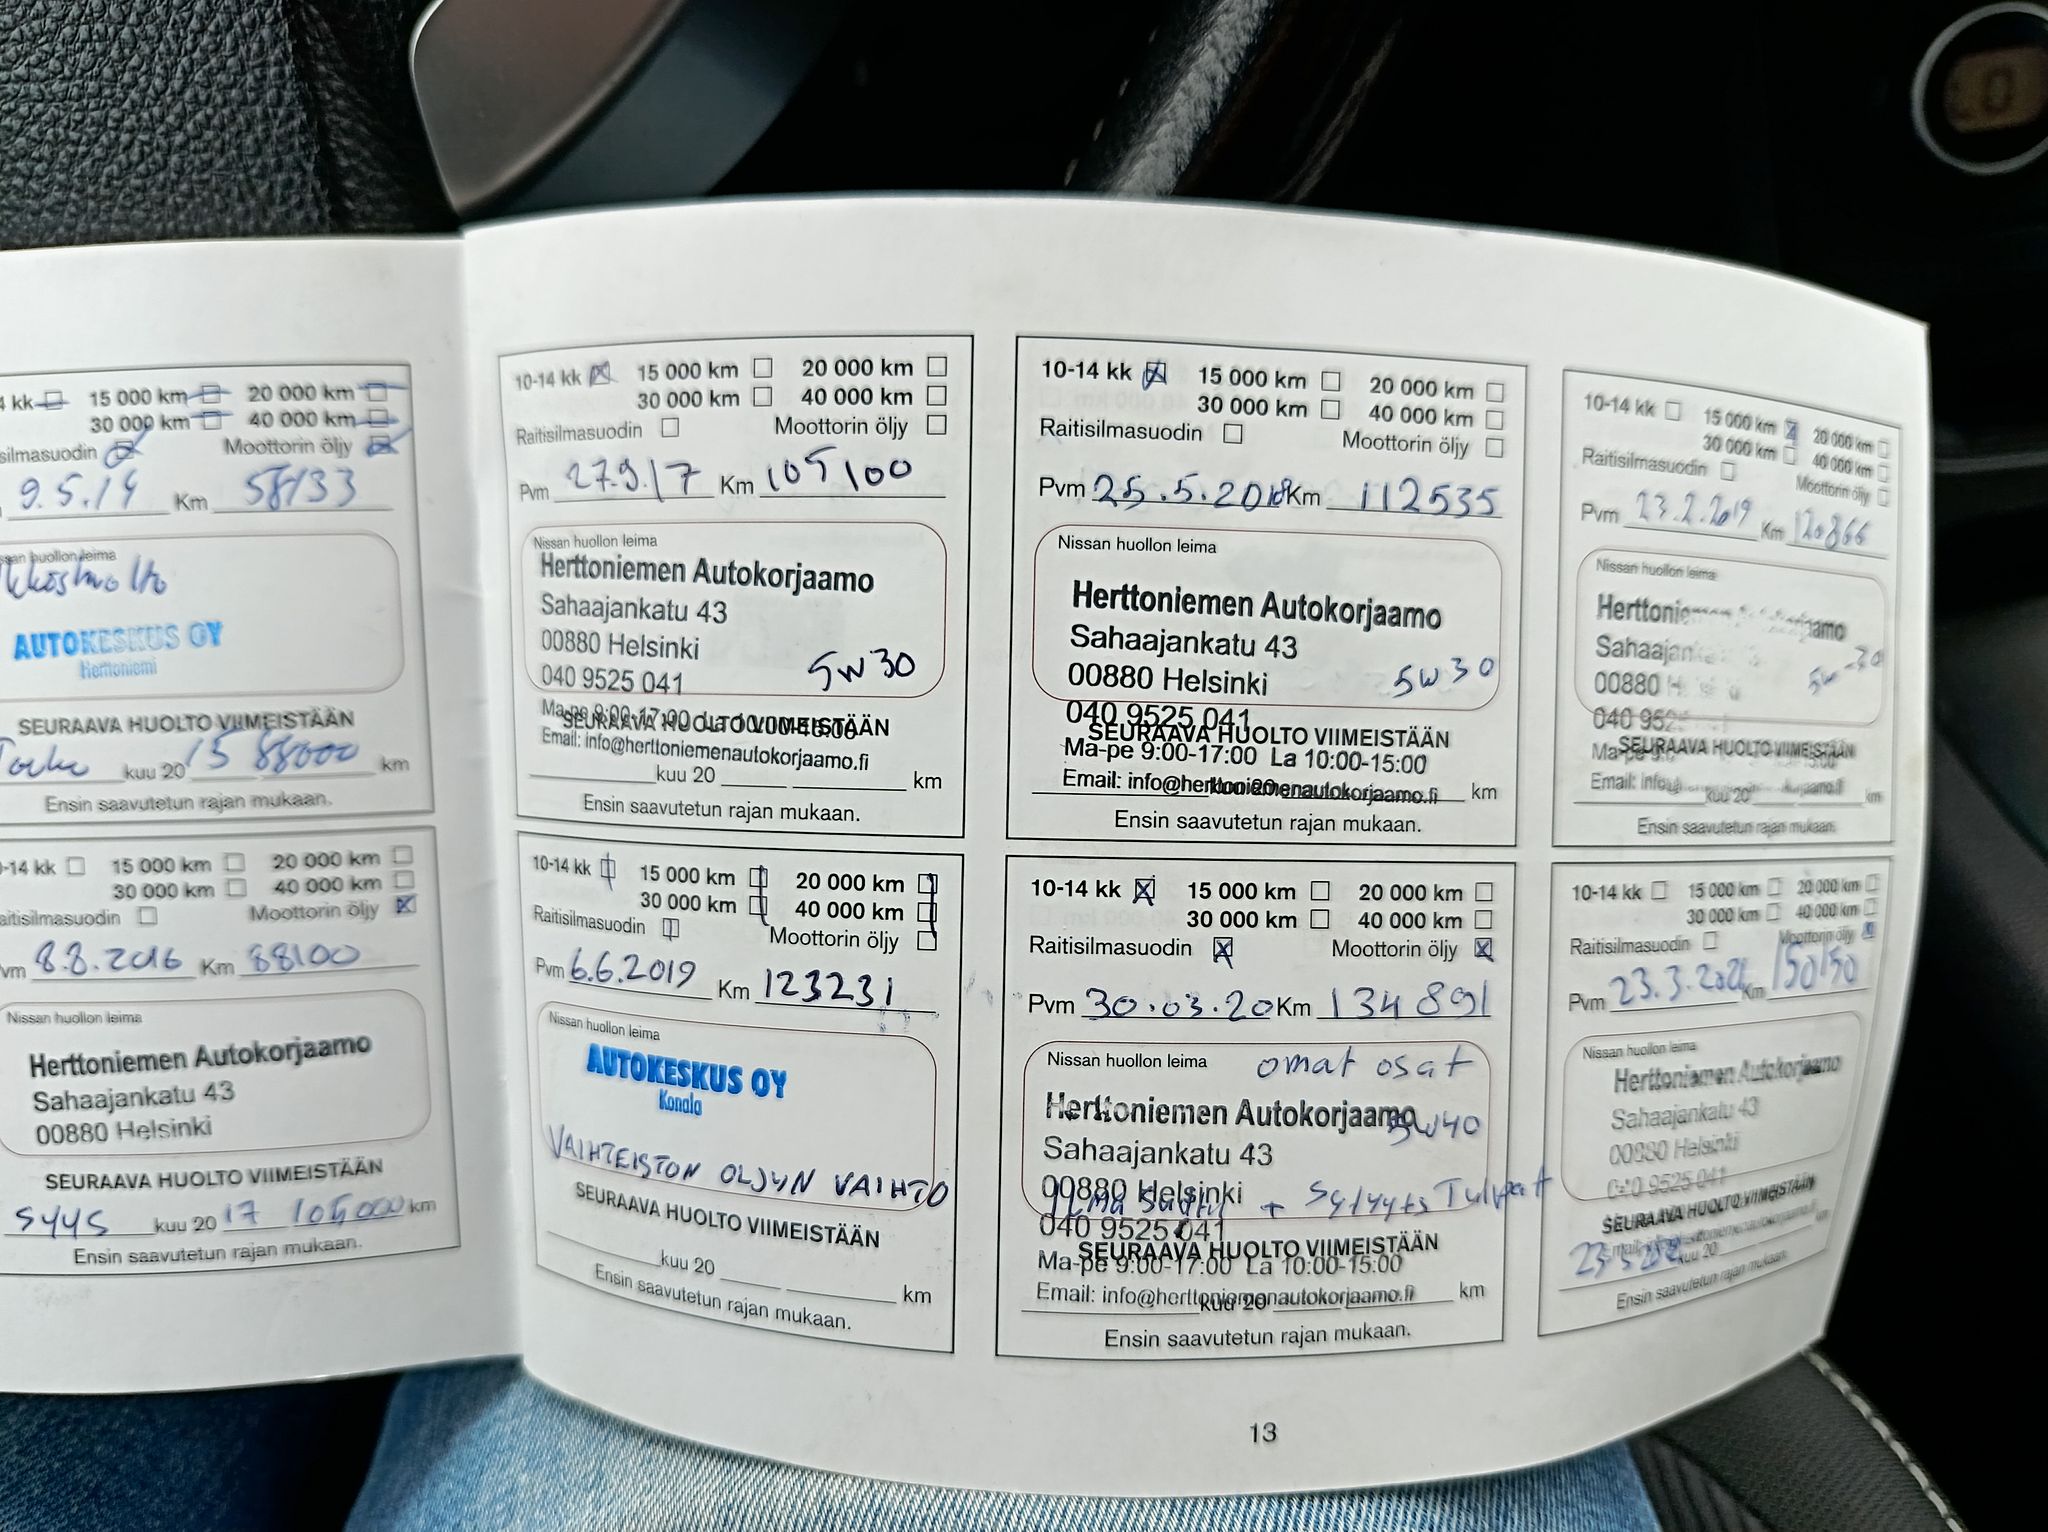 4 kk 15 000 km 20 000 km
30 000 km 40 000 km
silmasuodin Moottorin öljy
9.5.14 Km 58133
ssan huollon leima
AUTOKESKUS OY
Herttoniemi
SEURAAVA HUOLTO VIIMEISTÄÄN
kuu 20 15 88000 km
Ensin saavutetun rajan mukaan.
0-14 kk 15 000 km 20 000 km
30 000 km 40 000 km
aitisilmasuodin Moottorin öljy
vm 8.8.2016 Km 88100
Nissan huollon leima
Herttoniemen Autokorjaamo
Sahaajankatu 43
00880 Helsinki
SEURAAVA HUOLTO VIIMEISTÄÄN
syys kuu 20 17 105000 km
Ensin saavutetun rajan mukaan.
10-14 kk 15 000 km 20 000 km
30 000 km 40 000 km
Raitisilmasuodin Moottorin öljy
Pvm 27.9.17 Km 105100
Nissan huollon leima
Herttoniemen Autokorjaamo
Sahaajankatu 43
00880 Helsinki
5W30
040 9525 041
Ma-pe 9:00-17:00 La
SEURAAVA HUOLTO VIIMEISTÄÄN
Email: info@herttoniemenautokorjaamo.fi
kuu 20 km
Ensin saavutetun rajan mukaan.
10-14 kk 15 000 km 20 000 km
30 000 km 40 000 km
Raitisilmasuodin Moottorin öljy
Pvm 25.5.2018 Km 112535
Nissan huollon leima
Herttoniemen Autokorjaamo
Sahaajankatu 43
00880 Helsinki
5W30
040 9525 041
SEURAAVA HUOLTO VIIMEISTÄÄN
Ma-pe 9:00-17:00 La 10:00-15:00
Email: info@herttoniemenautokorjaamo.fi
kuu 20 km
Ensin saavutetun rajan mukaan.
10-14 kk 15 000 km 20 000 km
30 000 km 40 000 km
Raitisilmasuodin Moottorin öljy
Pvm 23.2.2019 Km 120866
Nissan huollon leima
Herttoniemen Autokorjaamo
Sahaajan
00880
5W-30
040 952
SEURAAVA HUOLTO VIIMEISTÄÄN
Ma-pe
Email:
kuu 20 km
Ensin saavutetun rajan mukaan.
10-14 kk 15 000 km 20 000 km
30 000 km 40 000 km
Raitisilmasuodin Moottorin öljy
Pvm 6.6.2019 Km 123231
Nissan huollon leima
AUTOKESKUS OY
Konala
VAIHTEISTON OLJYN VAIHTO
SEURAAVA HUOLTO VIIMEISTÄÄN
kuu 20 km
Ensin saavutetun rajan mukaan.
10-14 kk 15 000 km 20 000 km
30 000 km 40 000 km
Raitisilmasuodin Moottorin öljy
Pvm 30.03.20 Km 134891
Nissan huollon leima omat osat
Herttoniemen Autokorjaamo
5W40
Sahaajankatu 43
00880 Helsinki
+ Sytytys Tulpat
040 9525 041
SEURAAVA HUOLTO VIIMEISTÄÄN
Ma-pe 9:00-17:00 La 10:00-15:00
Email: info@herttoniemenautokorjaamo.fi
kuu 20 km
Ensin saavutetun rajan mukaan.
10-14 kk 15 000 km 20 000 km
30 000 km 40 000 km
Raitisilmasuodin Moottorin öljy
Pvm Km 150150
Nissan huollon leima
Herttoniemen Autokorjaamo
Sahaajankatu 43
00880 Helsinki
040 9525 041
SEURAAVA HUOLTO VIIMEISTÄÄN
kuu 20
Ensin saavutetun rajan mukaan.
13